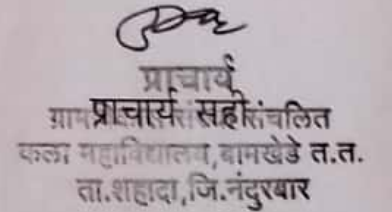 प्राचार्य
प्राचार्य सही
ग्राम संचलित
कला महाविद्यालय,बामखेडे त.त.
ता.शहादा,जि.नंदुरबार